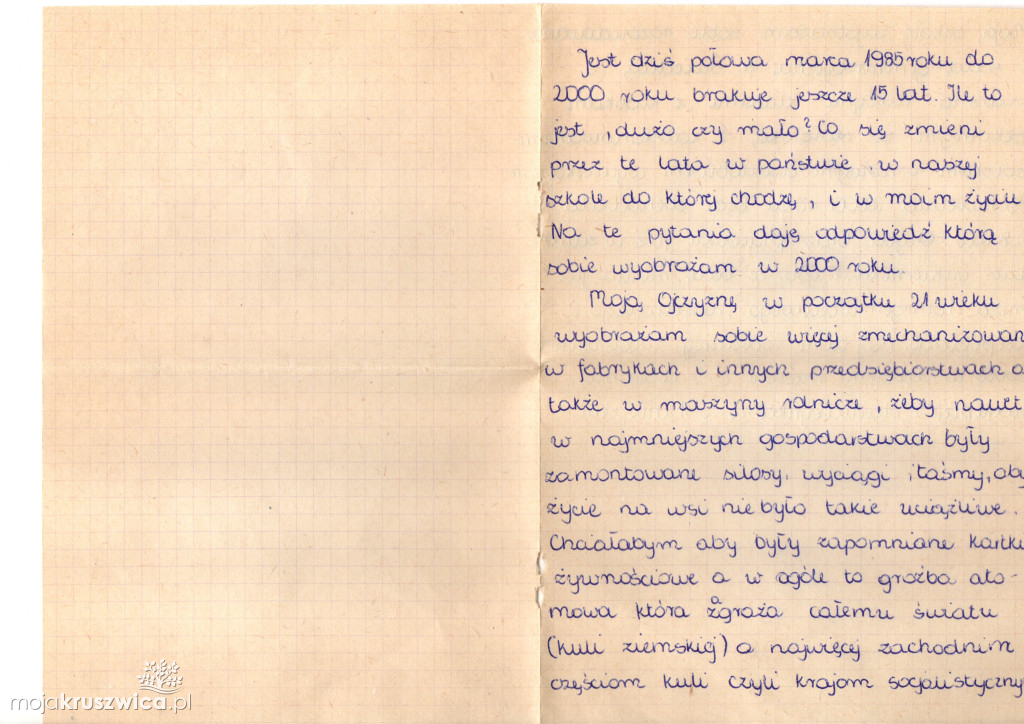 Jest dziś połowa marca 1985 roku do
2000 roku brakuje jeszcze 15 lat. Ile to
jest, dużo czy mało? Co się zmieni
przez te lata w państwie, w naszej
szkole do której chodzę, i w moim życiu
Na te pytania daję odpowiedź którą
sobie wyobrażam w 2000 roku.
Moją Ojczyznę w początku 21 wieku
wyobrażam sobie więcej zmechanizowan
w fabrykach i innych przedsiębiorstwach a
także w maszyny rolnicze, żeby nawet
w najmniejszych gospodarstwach były
zamontowane silosy, wyciągi, taśmy, aby
życie na wsi nie było takie uciążliwe.
Chciałabym aby były zapomniane kartki
żywnościowe a w ogóle to groźba ato-
mowa która zagraża całemu światu
(kuli ziemskiej) a najwięcej zachodnim
częściom kuli czyli krajom socjalistyczny
mojakruszwica.pl